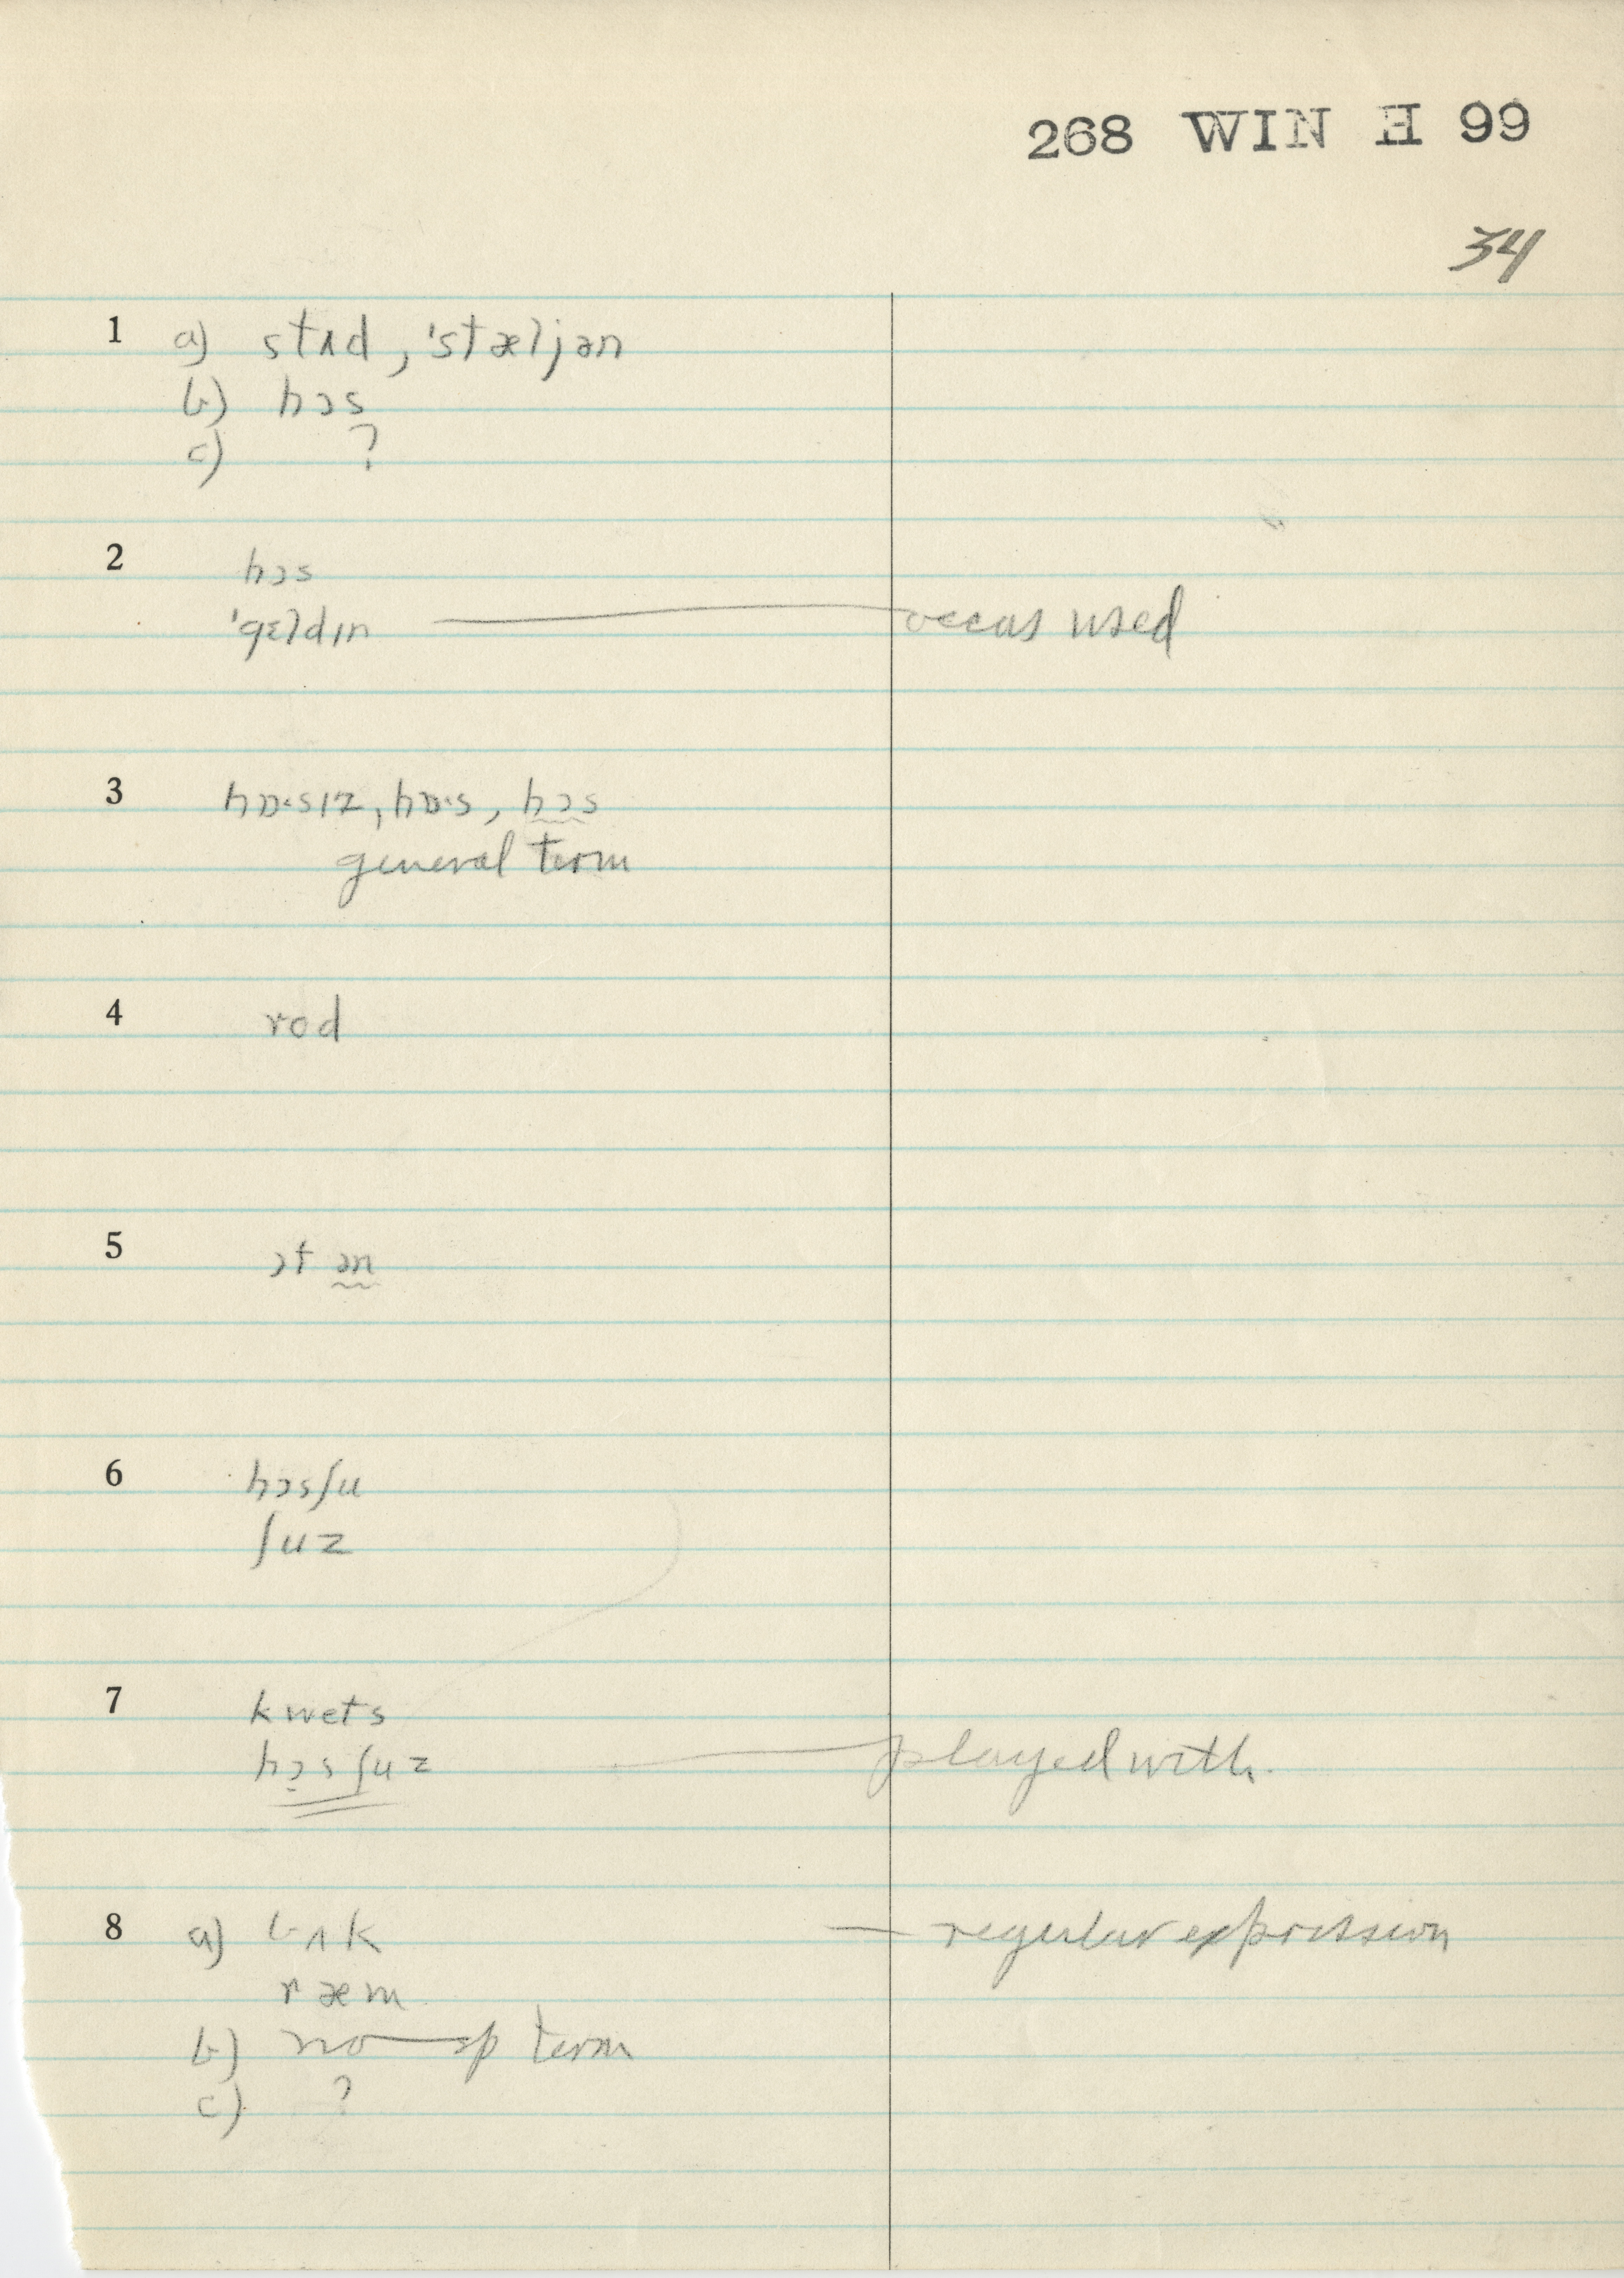 268 WIN H 99
34
1 a) stʌd, 'stæljən
b) hɔs
c) ?
2 hɔs
'gɛldɪn — occas used
3 hɒ·sɪz, hɒ·s, hɔs
general term
4 rod
5 ɔt ən
6 hɔsʃu
ʃuz
7 kwets
hɔsʃuz — played with.
8 a) bʌk — regular expression
ræm
b) no sp term
c) ?